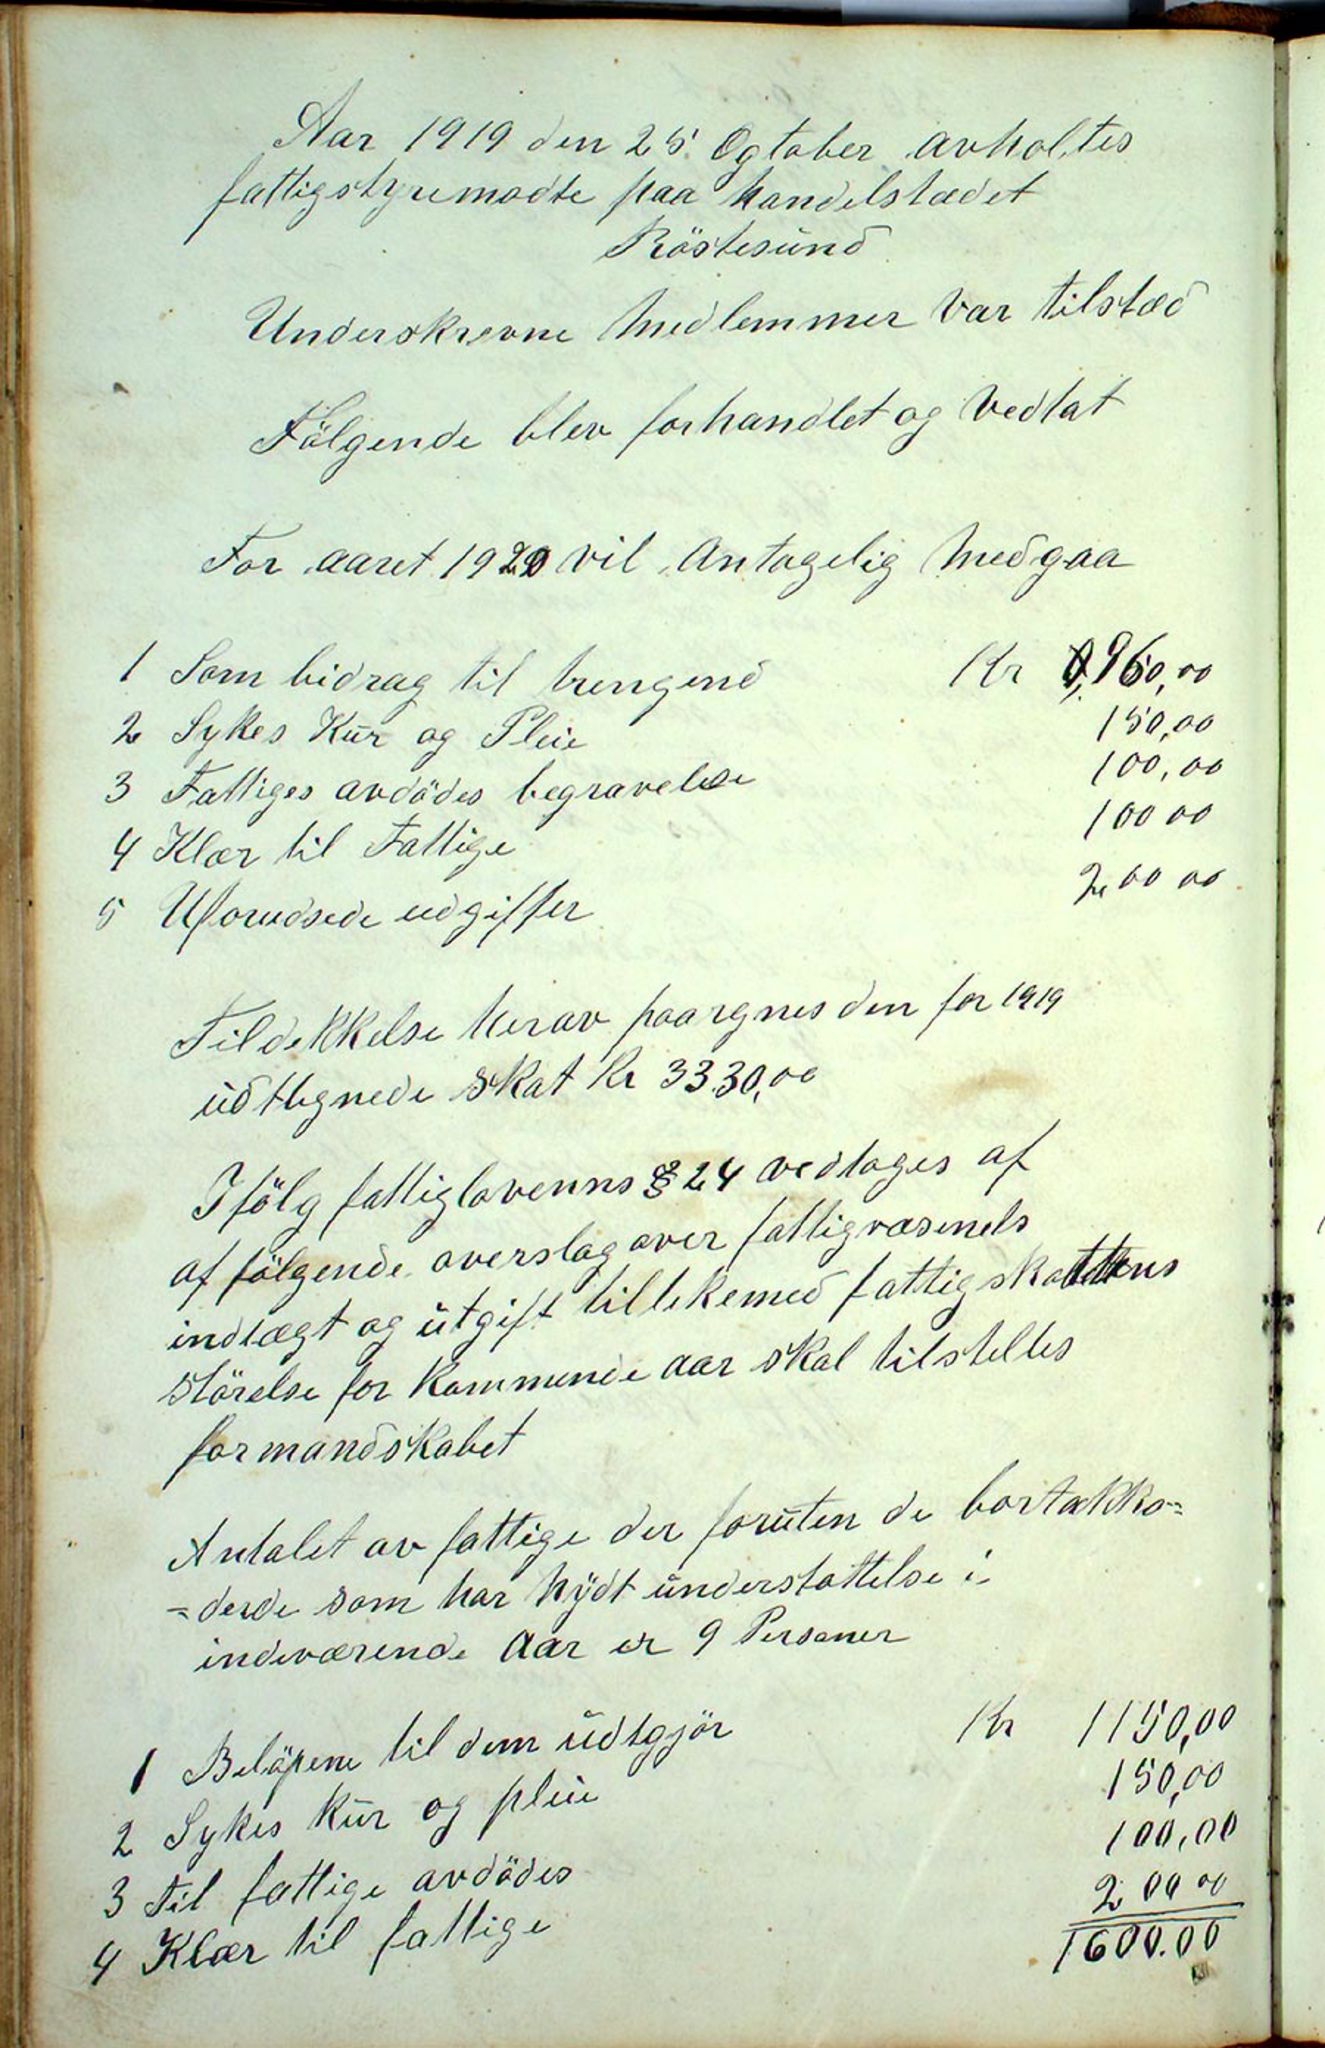 Aar 1919 den 25 Ogtober avholtes
fattigstyremødte paa handelstædet
Röstesund
Underskrevne Medlemmer var tilstæd
Fölgende blev forhandlet og Vedtat
For aaret 1920 vil Antagelig Medgaa
1 Som bidrag til trengend Kr 960,00
2 Sykes Kur og Pleie 150,00
3 Fattiges avdödes begravelse 100,00
4 Klær til Fattige 100 00
5 Uforudsede udgiffter 200 00
Til dekkelse herav paaregnes den for 1919
udtlignede skat Kr 3330,00
Ifölg fattiglovenns § 24 vedtages af
af fölgende overslag over fattigvæsenets
indtægt og utgift tillikemed fattigskattens
störelse for kommende aar skal tilstelles
formandskabet
Antalet av fattige der foruten de bortakko=
=derde som har Nydt understøttelse i
indeværende Aar er 9 Personer
1 Belöpene til dem udtgjör Kr 1150,00
2 Sykes kur og pleie 150,00
3 Til fattige avdödes 100,00
4 Klær til fattige 200 00
1600.00